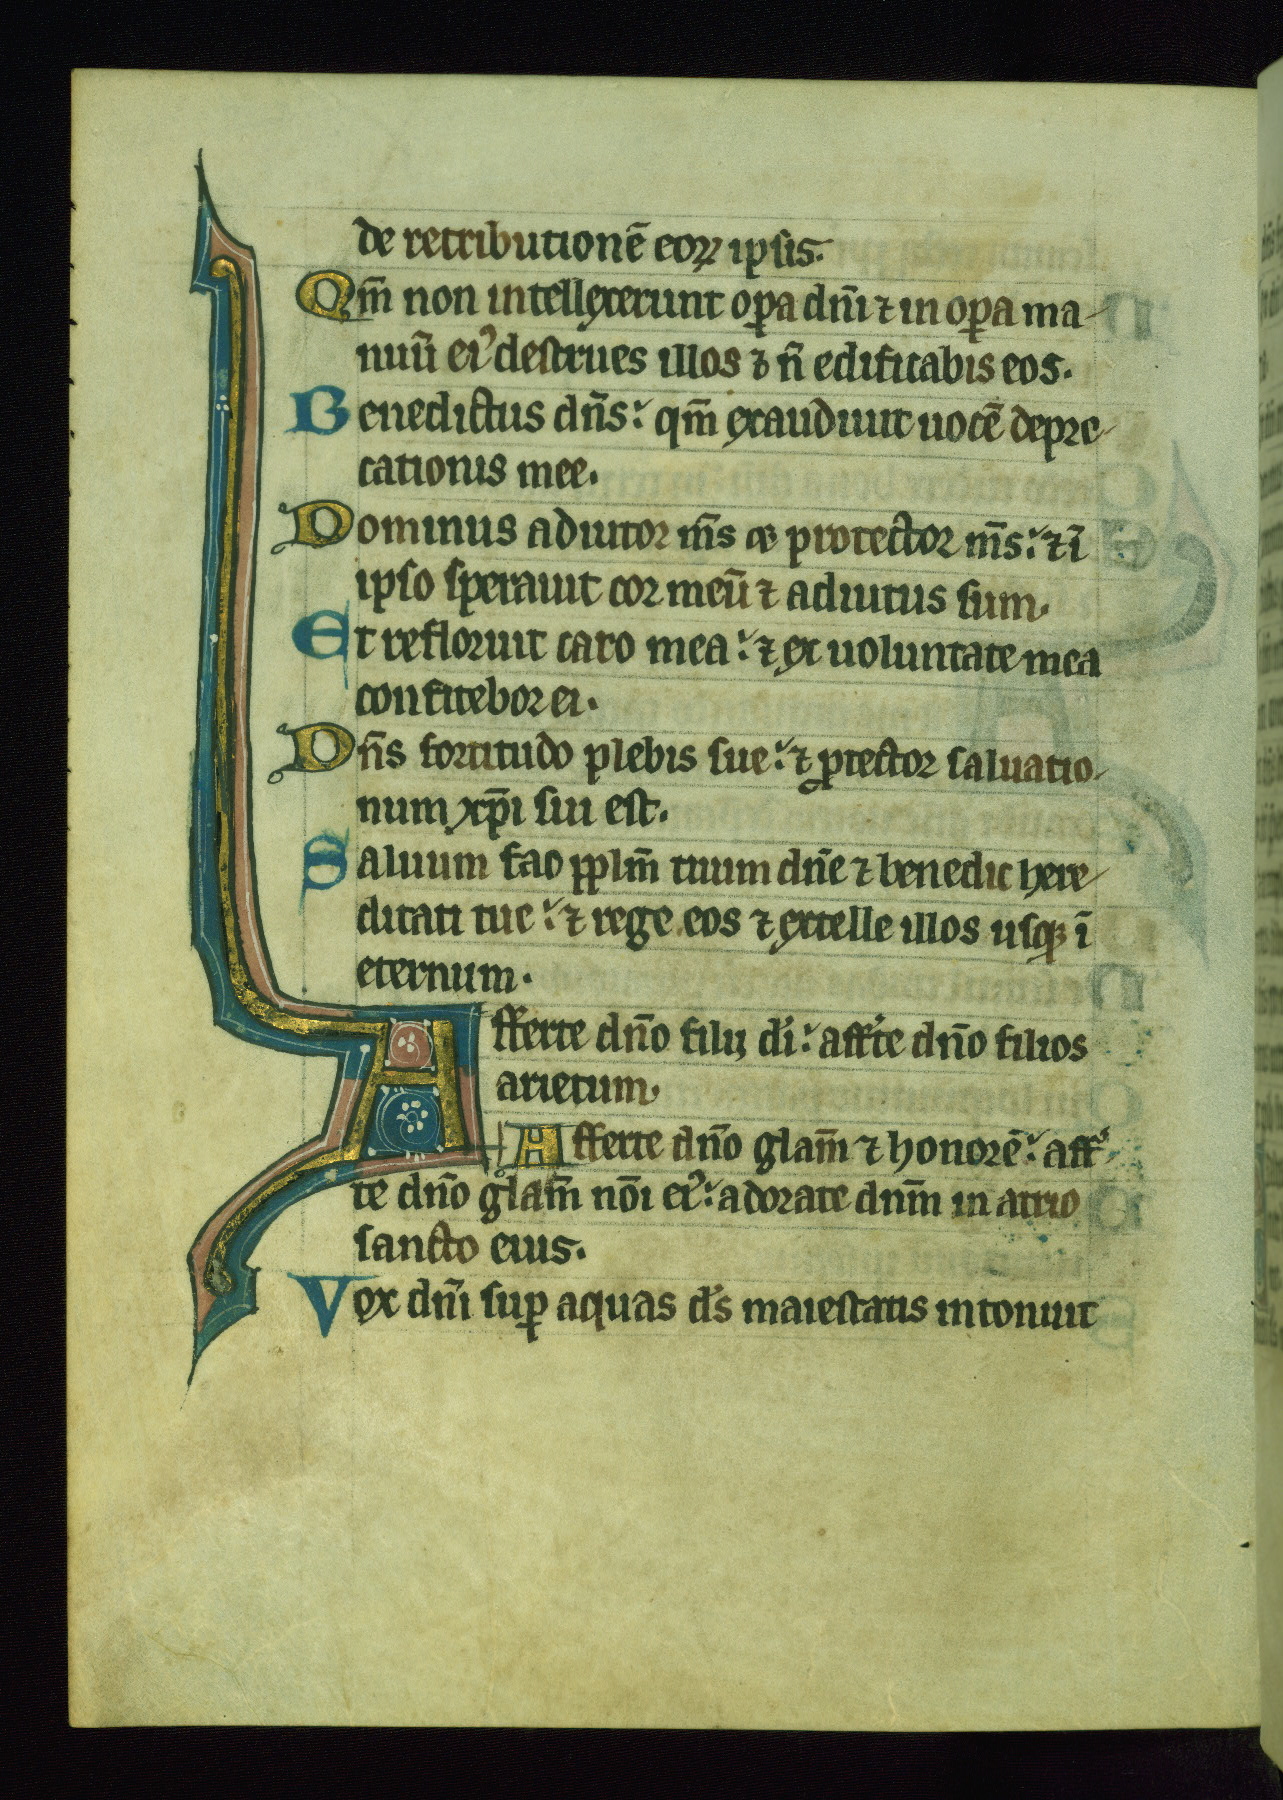 de retributionē eoꝝ ipsis.
Qm̄ non intellexerunt oꝑa dn̄i ⁊ in oꝑa ma-
nuū eiꝰ destrues illos ⁊ n̄ edificabis eos.
Benedictus dn̄s: qm̄ exaudiuit uocē depre-
cationis mee.
Dominus adiutor m̄s & protector m̄s: ⁊ ī
ipso sperauit cor meū ⁊ adiutus sum.
Et refloruit caro mea: ⁊ ex uoluntate mea
confitebor ei.
Dn̄s fortitudo plebis sue: ⁊ ꝓtector saluatio-
num xp̄i sui est.
Saluum fac pplm̄ tuum dn̄e ⁊ benedic here-
ditati tue: ⁊ rege eos ⁊ extelle illos usqꝫ ī
eternum.
Afferte dn̄o filij dī: aff̓te dn̄o filios
arietum.
Afferte dn̄o glam̄ ⁊ honorē: aff̓
te dn̄o glam̄ nōi eiꝰ: adorate dnm̄ in atrio
sancto eius.
Vox dn̄i suꝑ aquas d̄s maiestatis intonuit